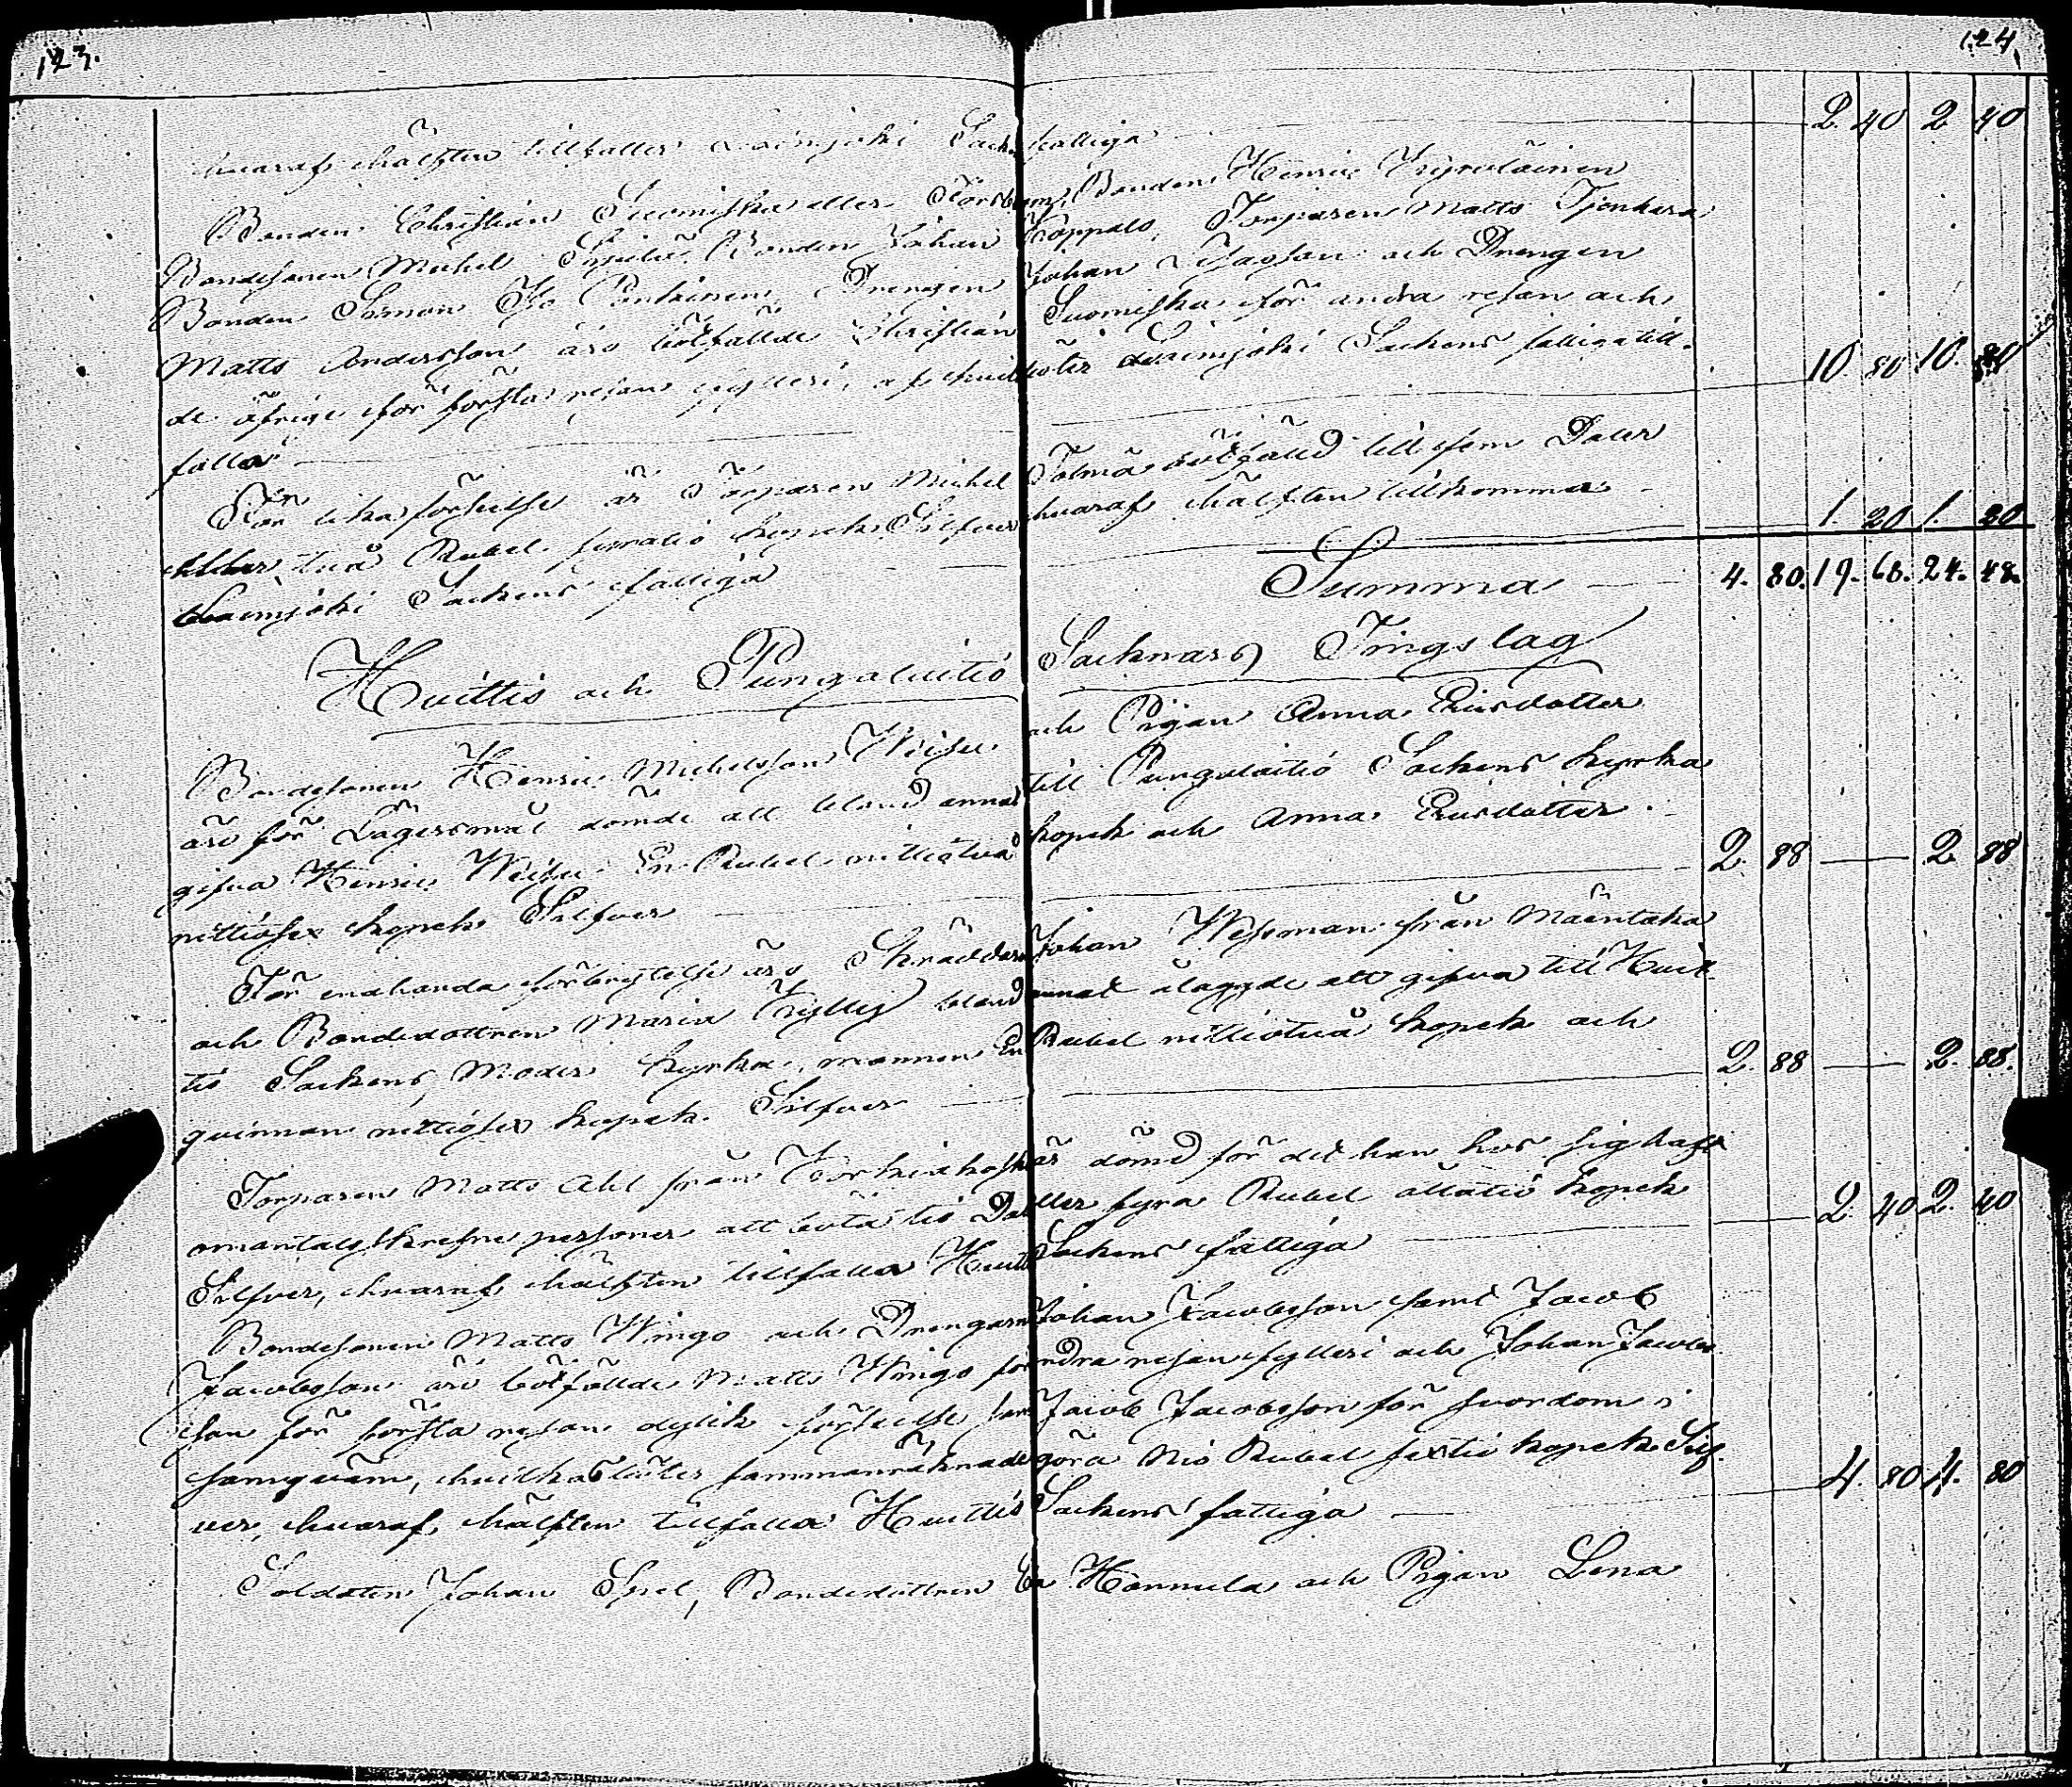 123.
124.
hvaraf hälften tillfaller Loimjoki Sockns fattiga 2. 40 2 40
Bonden Christian Suomiska eller Forsbom, Bonden Henric Kyröläinen
Bondesonen Michel Sipilä, Bonden Johan Koppalo, Torparen Matts Tjenkara
Bonden Simon Iso Pontinen, Drengen Johan Isacsson och Drengen
Matts Andersson äro bötfällde Christian Suomiska för andra resan och
de öfrige för första resan fylleri, af hvilka böter Loimjoki Sockens fattiga till-
falla 10 80 10. 80
För lika förseelse är Torparen Michel Tolmä bötfälld till fem Daler
eller två Rubel fyratio kopek Silfver hvaraf hälften tillkomma
Loimjoki Sockens fattiga 1. 20 1. 20
Summa 4. 80. 19. 68. 24. 48.
Huittis och Pungalaitio Socknars Tingslag
Bondesonen Henric Michelsson Weisu och Pigan Anna Ericsdotter
äro för Lägersmål dömde att bland annat till Pungalaitio Sockens kyrka
gifva Henric Weisu En Rubel nittiotvå kopek och Anna Ericsdotter
nittiosex kopek Silfver 2. 88 2 88
För enahanda förbrytelse äro Skräddaren Johan Wessman från Mäentaka
och Bondedottren Maria Yrylly bland annat ålagde att gifva till Huit-
tis Sockens Moder kyrka, mannen En Rubel nittiotvå kopek och
qvinnan nittiosex kopek Silfver 2. 88 2. 88.
Torparen Matts Ahl från Korkiakoski är dömd för det han hos sig haft
omantalsskrefne personer att böta tio Daler eller fyra Rubel åttatio kopek
Silfver, hvaraf hälften tillfalla Huittis Sockens fattiga 2. 40 2. 40
Bondesonen Matts Wingo och Drengarne Johan Jacobsson samt Jacob
Jacobsson äro bötfällde Matts Wingo för andra resan fylleri och Johan Jacobs-
son för första resan dylik förseelse samt Jacob Jacobsson för svordom i
samqväm, hvilka böter sammanräknade göra Nio Rubel sextio kopek Silf-
ver, hvaraf hälften tillfalla Huittis Sockens fattiga 4. 80 4. 80
Soldaten Johan Sjel, Bondedottren Eva Hannula och Pigan Lena